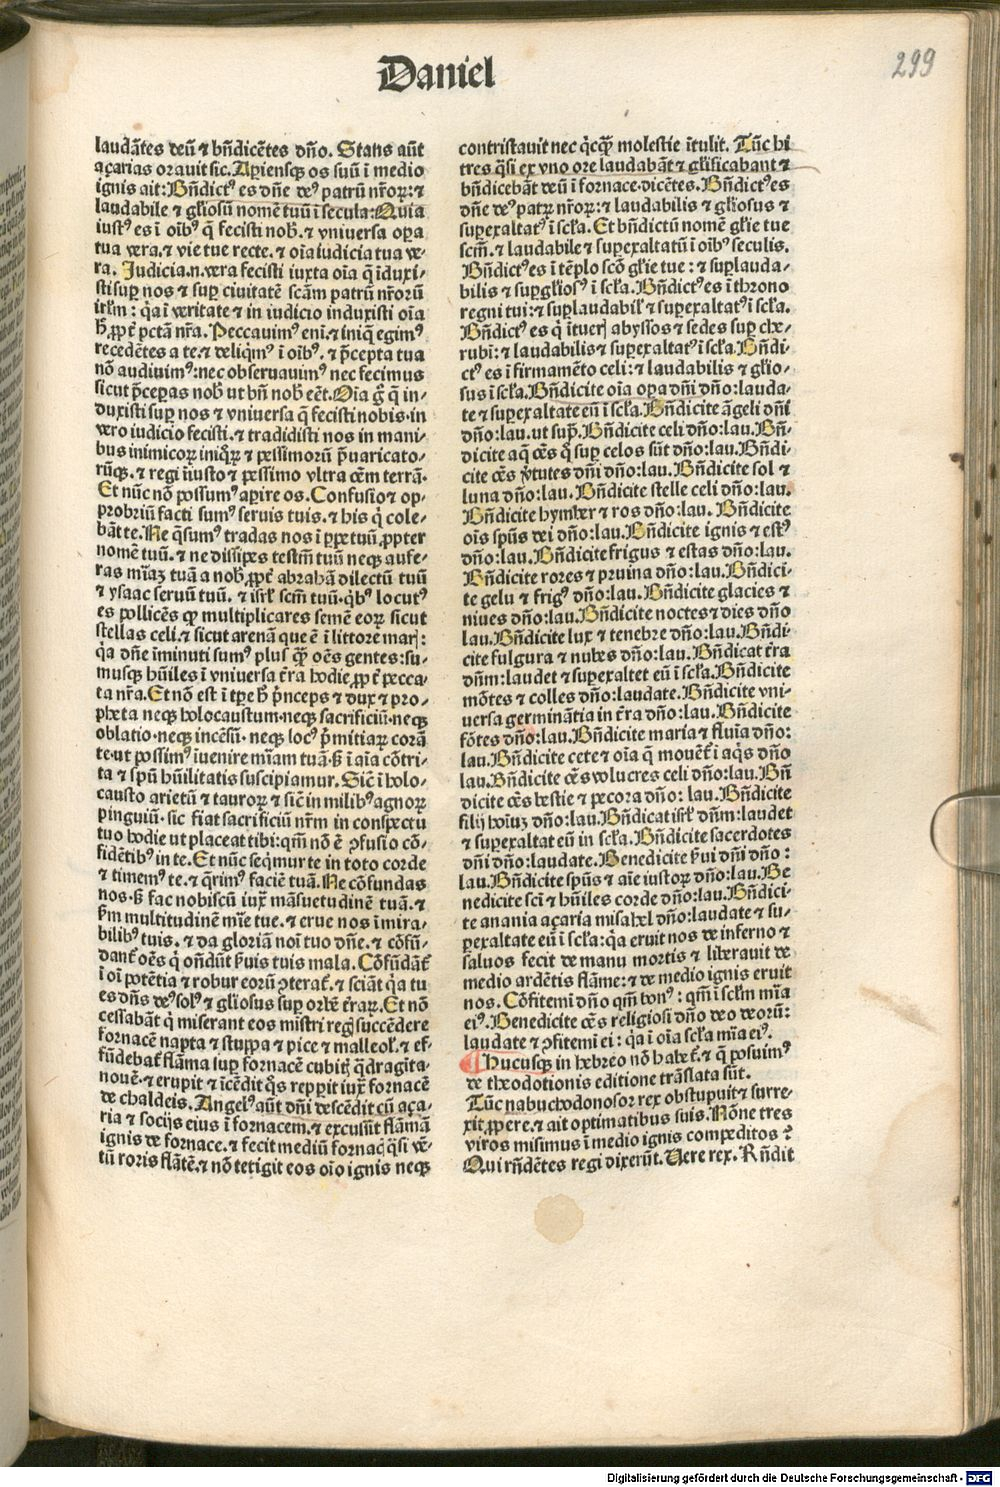 Daniel
299
laudātes deū ⁊ bn̄dicētes dn̄o. Stans aūt
açarias orauit sic. Aꝑiensqꝫ os suū ī medio
ignis ait: Bn̄dictꝰ es dn̄e deꝰ patrū nr̄oꝝ: ⁊
laudabile ⁊ gl̄iosū nomē tuū ī secula: Quia
iustꝰ es ī oībꝰ q̄ fecisti nob̄. ⁊ vniuersa oꝑa
tua vera. ⁊ vie tue recte. ⁊ oīa iudicia tua ve⸗
ra. Judicia.n.vera fecisti iuxta oīa q̄ īduxi⸗
sti suꝑ nos ⁊ suꝑ ciuitatē scām patrū nr̄orū
irl̄m: q̇a ī veritate ⁊ in iudicio induxisti oīa
h̄ ꝓpt̄ pctā nr̄a. Peccauimꝰ eni. ⁊ iniq̄ egimꝰ
recedētes a te. ⁊ deliq̇mꝰ ī oībꝰ. ⁊ p̄cepta tua
nō audiuimꝰ: nec obseruauimꝰ nec fecimus
sicut p̄ceꝑas nob̄ ut bn̄ nob̄ eēt. Oīa g̊ q̄ in⸗
duxisti suꝑ nos ⁊ vniuersa q̄ fecisti nobis. in
vero iudicio fecisti. ⁊ tradidisti nos in mani⸗
bus inimicoꝝ iniq̇ꝝ ⁊ pessimorū p̄uaricato⸗
rūqꝫ. ⁊ regi īiusto ⁊ pessimo vltra cēm terrā.
Et nūc nō possumꝰ aꝑire os. Confusio ⁊ op⸗
probriū facti sumꝰ seruis tuis. ⁊ his q̇ cole⸗
bāt te. Ne q̄sumꝰ tradas nos ī ꝑpetuū ꝓpter
nomē tuū. ⁊ ne dissipes testm̄ tuū neqꝫ aufe⸗
ras mīaꝫ tuā a nob̄ ꝓpt̄ abrahā dilectū tuū
⁊ ysaac seruū tuū. ⁊ isrl̄ scm̄ tuū. q̇bꝰ locutꝰ
es pollicēs ꝙ multiplicares semē eoꝝ sicut
stellas celi. ⁊ sicut arenā que ē ī littore marꝭ:
q̇a dn̄e īminuti sumꝰ plus ꝙ̄ oēs gentes: su⸗
musqꝫ hūiles ī vniuersa t̄ra hodie ꝓpt̄ pecca⸗
ta nr̄a. Et nō est ī tꝑe h̄ p̄nceps ⁊ dux ⁊ pro⸗
pheta neqꝫ holocaustum. neqꝫ sacrificiū. neqꝫ
oblatio. neqꝫ incēsū. neqꝫ locꝰ p̄mitiaꝝ corā
te. ut possimꝰ īuenire mīam tuā. sꝫ ī aīa cōtri⸗
ta ⁊ spū hūilitatis suscipiamur. Sicᷓ ī holo⸗
causto arietū ⁊ tauroꝝ ⁊ sicᷓ in milibꝰ agnoꝝ
pinguiū. sic fiat sacrificiū nr̄m in conspectu
tuo hodie ut placeat tibi: qm̄ nō ē ꝯfusio cō⸗
fidētibꝰ in te. Et nūc seq̇mur te in toto corde
⁊ timemꝰ te. ⁊ q̄rimꝰ faciē tuā. Ne cōfundas
nos. sꝫ fac nobiscū iuxᷓ māsuetudinē tuā. ⁊
ẜm multitudinē mīe tue. ⁊ erue nos ī mira⸗
bilibꝰ tuis. ⁊ da gloriā noī tuo dn̄e. ⁊ cōfū⸗
dant̄ oēs q̇ on̄dūt ẜuis tuis mala. Cōfūdāt̄
ī oī potētia ⁊ robur eorū ꝯterat̄. ⁊ sciāt q̇a tu
es dn̄s deꝰ solꝰ ⁊ gl̄iosus suꝑ orbē t̄raꝝ. Et nō
cessabāt q̇ miserant eos mistri regꝭ succēdere
fornacē napta ⁊ stuppa ⁊ pice ⁊ malleol̄. ⁊ ef⸗
fūdebat̄ flāma suꝑ fornacē cubitꝭ q̄dragīta⸗
nouē. ⁊ erupit ⁊ īcēdit q̇s repꝑit iuxᷓ fornacē
de chaldeis. Angelꝰ aūt dn̄i descēdit cū aça⸗
ria ⁊ socijs eius ī fornacem. ⁊ excussit flāmā
ignis de fornace. ⁊ fecit mediū fornacꝭ q̇si vē⸗
tū roris flātē. ⁊ nō tetigit eos oīo ignis neqꝫ
contristauit nec q̇cqꝙ̄ molestie ītulit. Tūc hi
tres q̇si ex vno ore laudabāt ⁊ gl̄ificabant ⁊
bn̄dicebāt deū ī fornace. dicētes. Bn̄dictꝰ es
dn̄e deꝰ patꝝ nr̄oꝝ: ⁊ laudabilis ⁊ gl̄iosus ⁊
suꝑexaltatꝰ ī scl̄a. Et bn̄dictū nomē gl̄ie tue
scm̄. ⁊ laudabile ⁊ suꝑexaltatū ī oībꝰ seculis.
Bn̄dictꝰ es ī tēplo scō gl̄ie tue: ⁊ suꝑlauda⸗
bilis ⁊ suꝑgl̄iosꝰ ī scl̄a. Bn̄dictꝰ es ī throno
regni tui: ⁊ suꝑlaudabil̄ ⁊ suꝑexaltatꝰ ī scl̄a.
Bn̄dictꝰ es q̇ ītuerꝭ abyssos ⁊ sedes suꝑ che⸗
rubī: ⁊ laudabilis ⁊ suꝑexaltatꝰ ī scl̄a. Bn̄di⸗
ctꝰ es ī firmamēto celi: ⁊ laudabilis ⁊ gl̄io⸗
sus ī scl̄a. Bn̄dicite oīa oꝑa dn̄i dn̄o: lauda⸗
te ⁊ suꝑexaltate eū ī scl̄a. Bn̄dicite āgeli dn̄i
dn̄o: lau. ut sup̄. Bn̄dicite celi dn̄o: lau. Bn̄⸗
dicite aq̄ oēs q̄ suꝑ celos sūt dn̄o: lau. Bn̄di⸗
cite oēs v̄tutes dn̄i dn̄o: lau. Bn̄dicite sol ⁊
luna dn̄o: lau. Bn̄dicite stelle celi dn̄o: lau.
Bn̄dicite hymber ⁊ ros dn̄o: lau. Bn̄dicite
oīs spūs dei dn̄o: lau. Bn̄dicite ignis ⁊ estꝰ
dn̄o: lau. Bn̄dicite frigus ⁊ estas dn̄o: lau.
Bn̄dicite rores ⁊ pruina dn̄o: lau. Bn̄dici⸗
te gelu ⁊ frigꝰ dn̄o: lau. Bn̄dicite glacies ⁊
niues dn̄o: lau. Bn̄dicite noctes ⁊ dies dn̄o
lau. Bn̄dicite lux ⁊ tenebre dn̄o: lau. Bn̄di⸗
cite fulgura ⁊ nubes dn̄o: lau. Bn̄dicat t̄ra
dn̄m: laudet ⁊ suꝑexaltet eū ī scl̄a. Bn̄dicite
mōtes ⁊ colles dn̄o: laudate. Bn̄dicite vni⸗
uersa germinātia in t̄ra dn̄o: lau. Bn̄dicite
fōtes dn̄o: lau. Bn̄dicite maria ⁊ fluīa dn̄o:
lau. Bn̄dicite cete ⁊ oīa q̄ mouēt̄ ī aq̇s dn̄o
lau. Bn̄dicite oēs volucres celi dn̄o: lau. Bn̄
dicite oēs bestie ⁊ pecora dn̄o: lau. Bn̄dicite
filij hoīuꝫ dn̄o: lau. Bn̄dicat isrl̄ dn̄m: laudet
⁊ suꝑexaltat eū in scl̄a. Bn̄dicite sacerdotes
dn̄i dn̄o: laudate. Benedicite ẜui dn̄i dn̄o:
lau. Bn̄dicite spūs ⁊ aīe iustoꝝ dn̄o: lau. Be
nedicite scī ⁊ hūiles corde dn̄o: lau. Bn̄dici⸗
te anania açaria misahel dn̄o: laudate ⁊ su⸗
ꝑexaltate eū ī scl̄a: q̇a eruit nos de inferno ⁊
saluos fecit de manu mortis ⁊ liberauit de
medio ardētis flāme: ⁊ de medio ignis eruit
nos. Cōfitemī dn̄o qm̄ bonꝰ: qm̄ ī scl̄m mīa
eiꝰ. Benedicite oēs religiosi dn̄o deo deorū:
laudate ⁊ ꝯfitemī ei: q̇a ī oīa scl̄a mīa eiꝰ.
¶ Hucusqꝫ in hebreo nō habet̄. ⁊ q̄ posuimꝰ
de theodotionis editione trāslata sūt.
Tūc nabuchodonosor rex obstupuit ⁊ surre⸗
xit ꝓpere. ⁊ ait optimatibus suis. Nōne tres
viros misimus ī medio ignis compeditos?
Qui rn̄dētes regi dixerūt. Vere rex. Rn̄dit
Digitalisierung gefördert durch die Deutsche Forschungsgemeinschaft - DFG